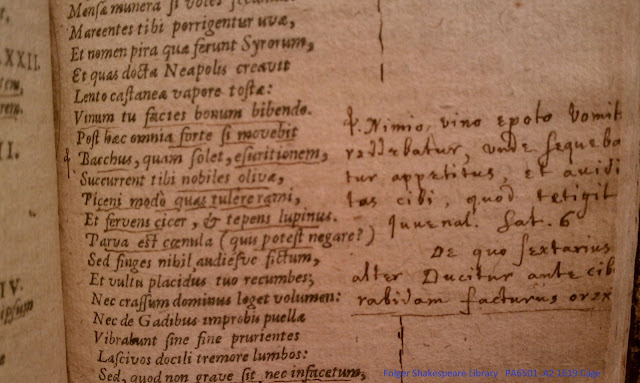 Mensæ munera si voles
Marcentes tibi porrigentur uvæ,
Et nomen pira quæ ferunt Syrorum,
Et quas docta Neapolis creavit
Lento castaneæ vapore tostæ:
Vinum tu facies bonum bibendo.
Post hæc omnia forte si movebit
Bacchus, quam solet, esuritionem,
Succurrent tibi nobiles olivæ,
Piceni modò quas tulere rami,
Et fervens cicer, & tepens lupinus.
Parva est cœnula (quis potest negare?)
Sed finges nihil, audiesve fictum,
Et vultu placidus tuo recumbes;
Nec crassum dominus leget volumen:
Nec de Gadibus improbis puellæ
Vibrabunt sine fine prurientes
Lascivos docili tremore lumbos:
Sed, quod non grave sit nec infacetum,
XXII.
II.
IV.
ipsum
Nimio, vino epoto vomit
reddebatur, unde sequeba
tur appetitus, et avidi
tas cibi, quod tetigit
Juvenal. Sat. 6
De quo sextarius
alter Ducitur ante cib
rabidam facturus orex
Folger Shakespeare Library PA6501 A2 1619 Cage